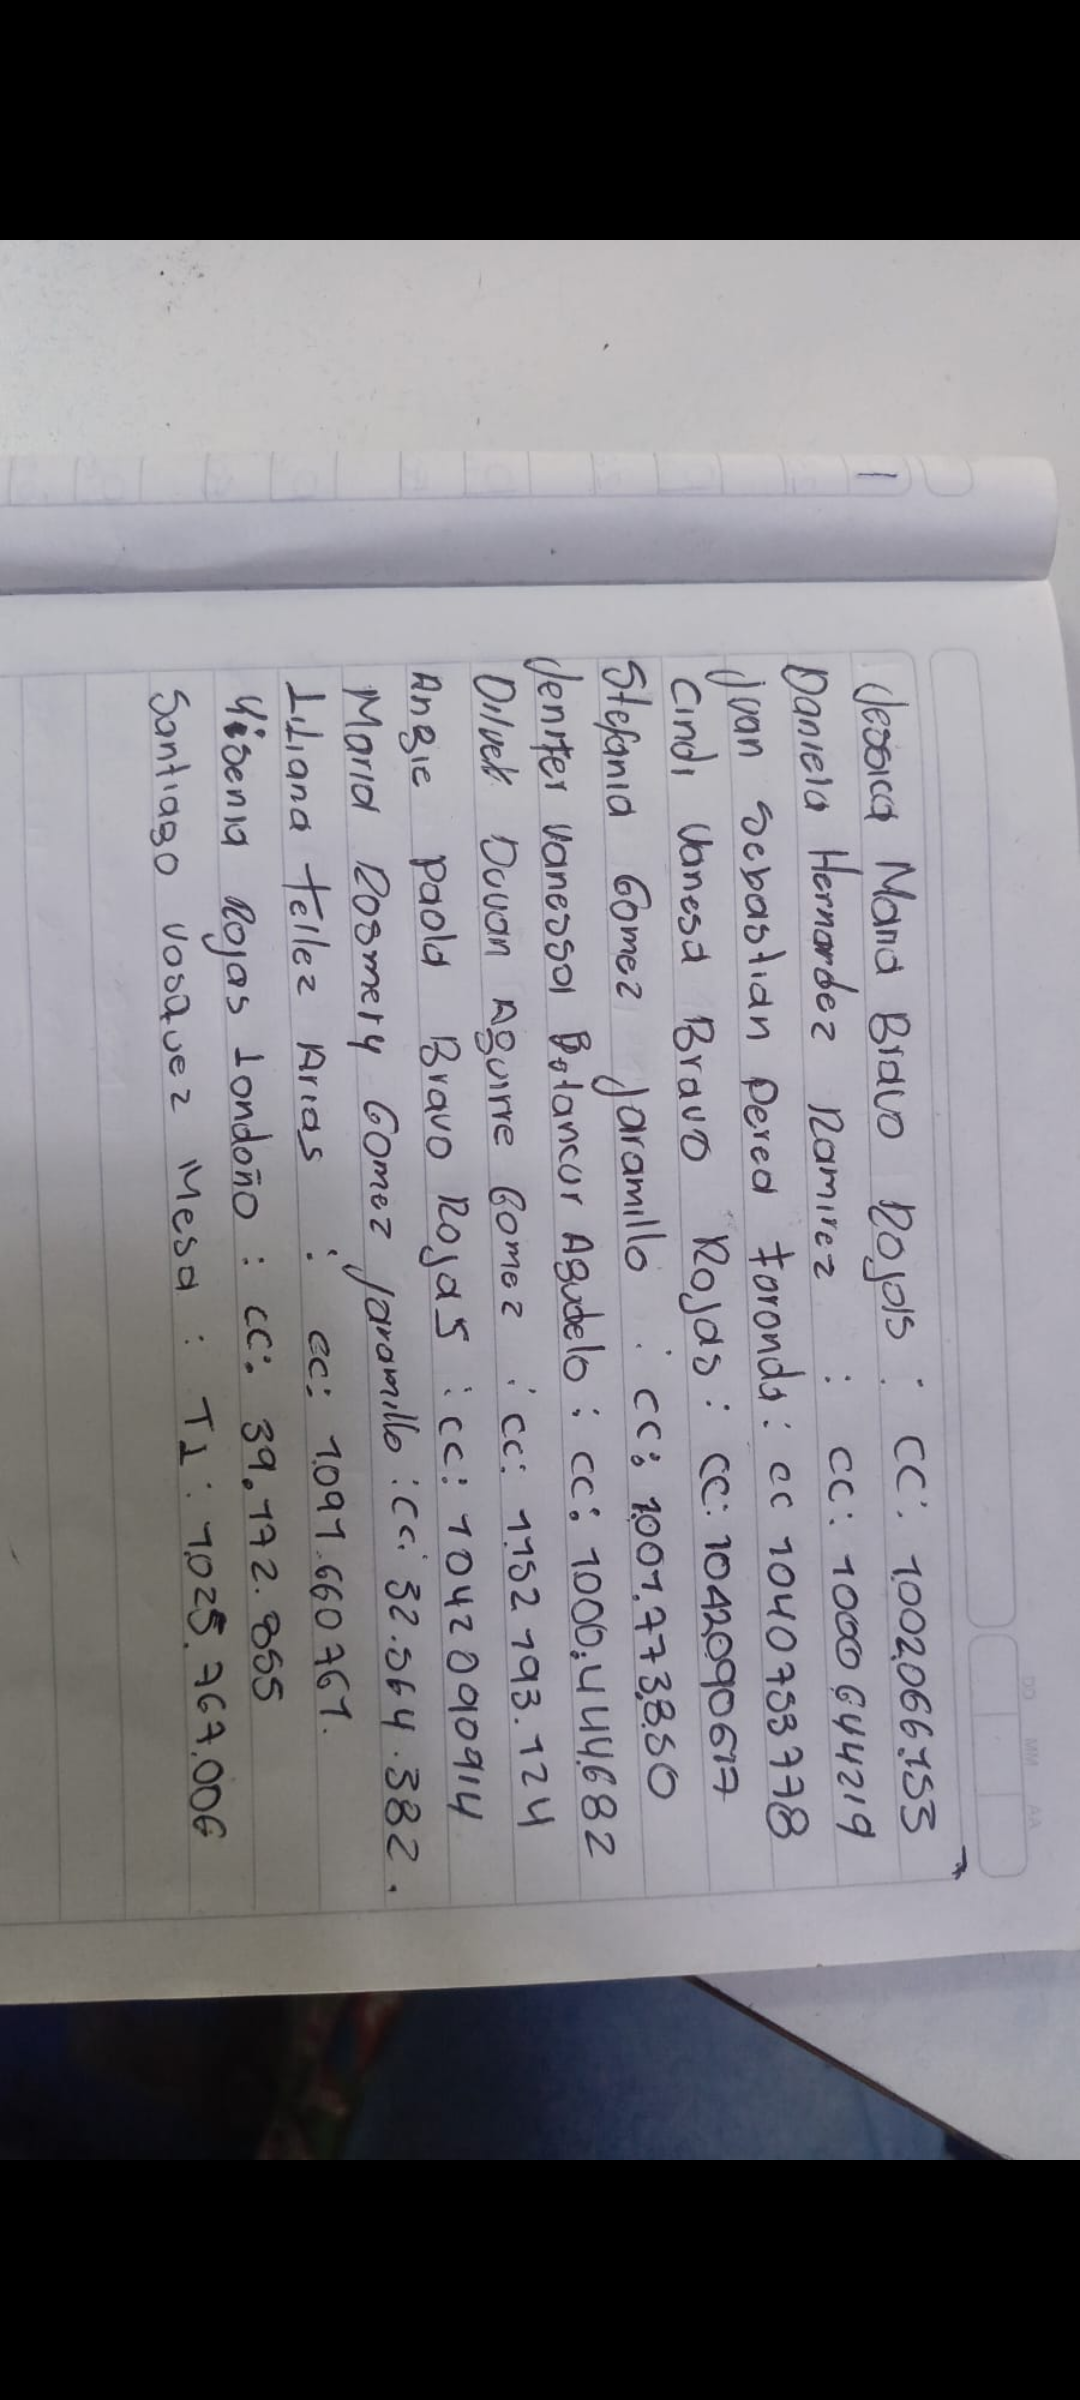 1
Jessica Maria Bravo Rojas : CC: 1.002.066.153
Daniela Hernandez Ramirez : CC: 1000644219
Juan Sebastian Perea Foronda: CC 1040733778
Cindi Vanesa Bravo Rojas: CC: 1042090617
Stefania Gomez Jaramillo : CC: 1.001.773.830
Jenifer Vanessa Betancur Agudelo : CC: 1.000.444.682
Duvan Aguirre Gomez : CC: 1.152.193.124
Angie Paola Bravo Rojas : CC: 1042090914
Maria Rosmery Gomez Jaramillo : CC: 32.564.382.
Liliana Tellez Arias : CC: 1.091.660761.
Yisenia Rojas Londoño : CC: 39.172.855
Santiago Vasquez Mesa : TI: 1.025.767.006
DD MM AA